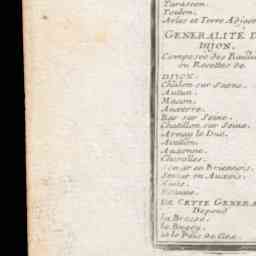 Tarascon.
Toulon.
Arles et Terre Adjace
GENERALITÉ D
DIJON.
Composée des Baillia
ou Recettes de
DIJON.
Chalon sur Saone.
Autun.
Macon.
Auxerre.
Bar sur Seine.
Chatillon sur Seine.
Arnay le Duc.
Avallon.
Auxonne.
Charolles.
Semur en Briennois.
Semur en Auxois.
Nuits.
DE CETTE GENERA
Depend
la Bresse.
le Bugey.
et le Païs de Gex.